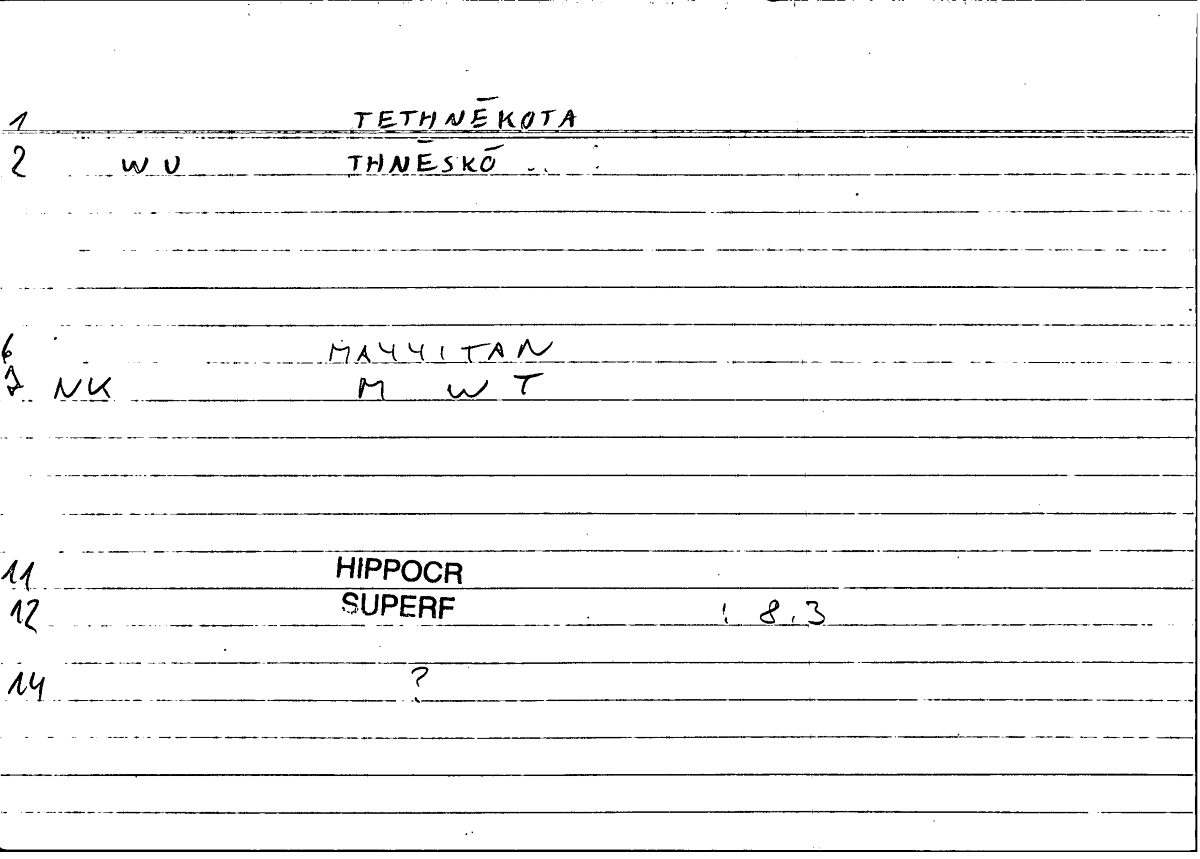 1 TETHNĒKOTA
2 WU THNĒSKŌ
6 MAYYITAN
7 NK M W T
11 HIPPOCR
12 SUPERF : 8.3
14 ?